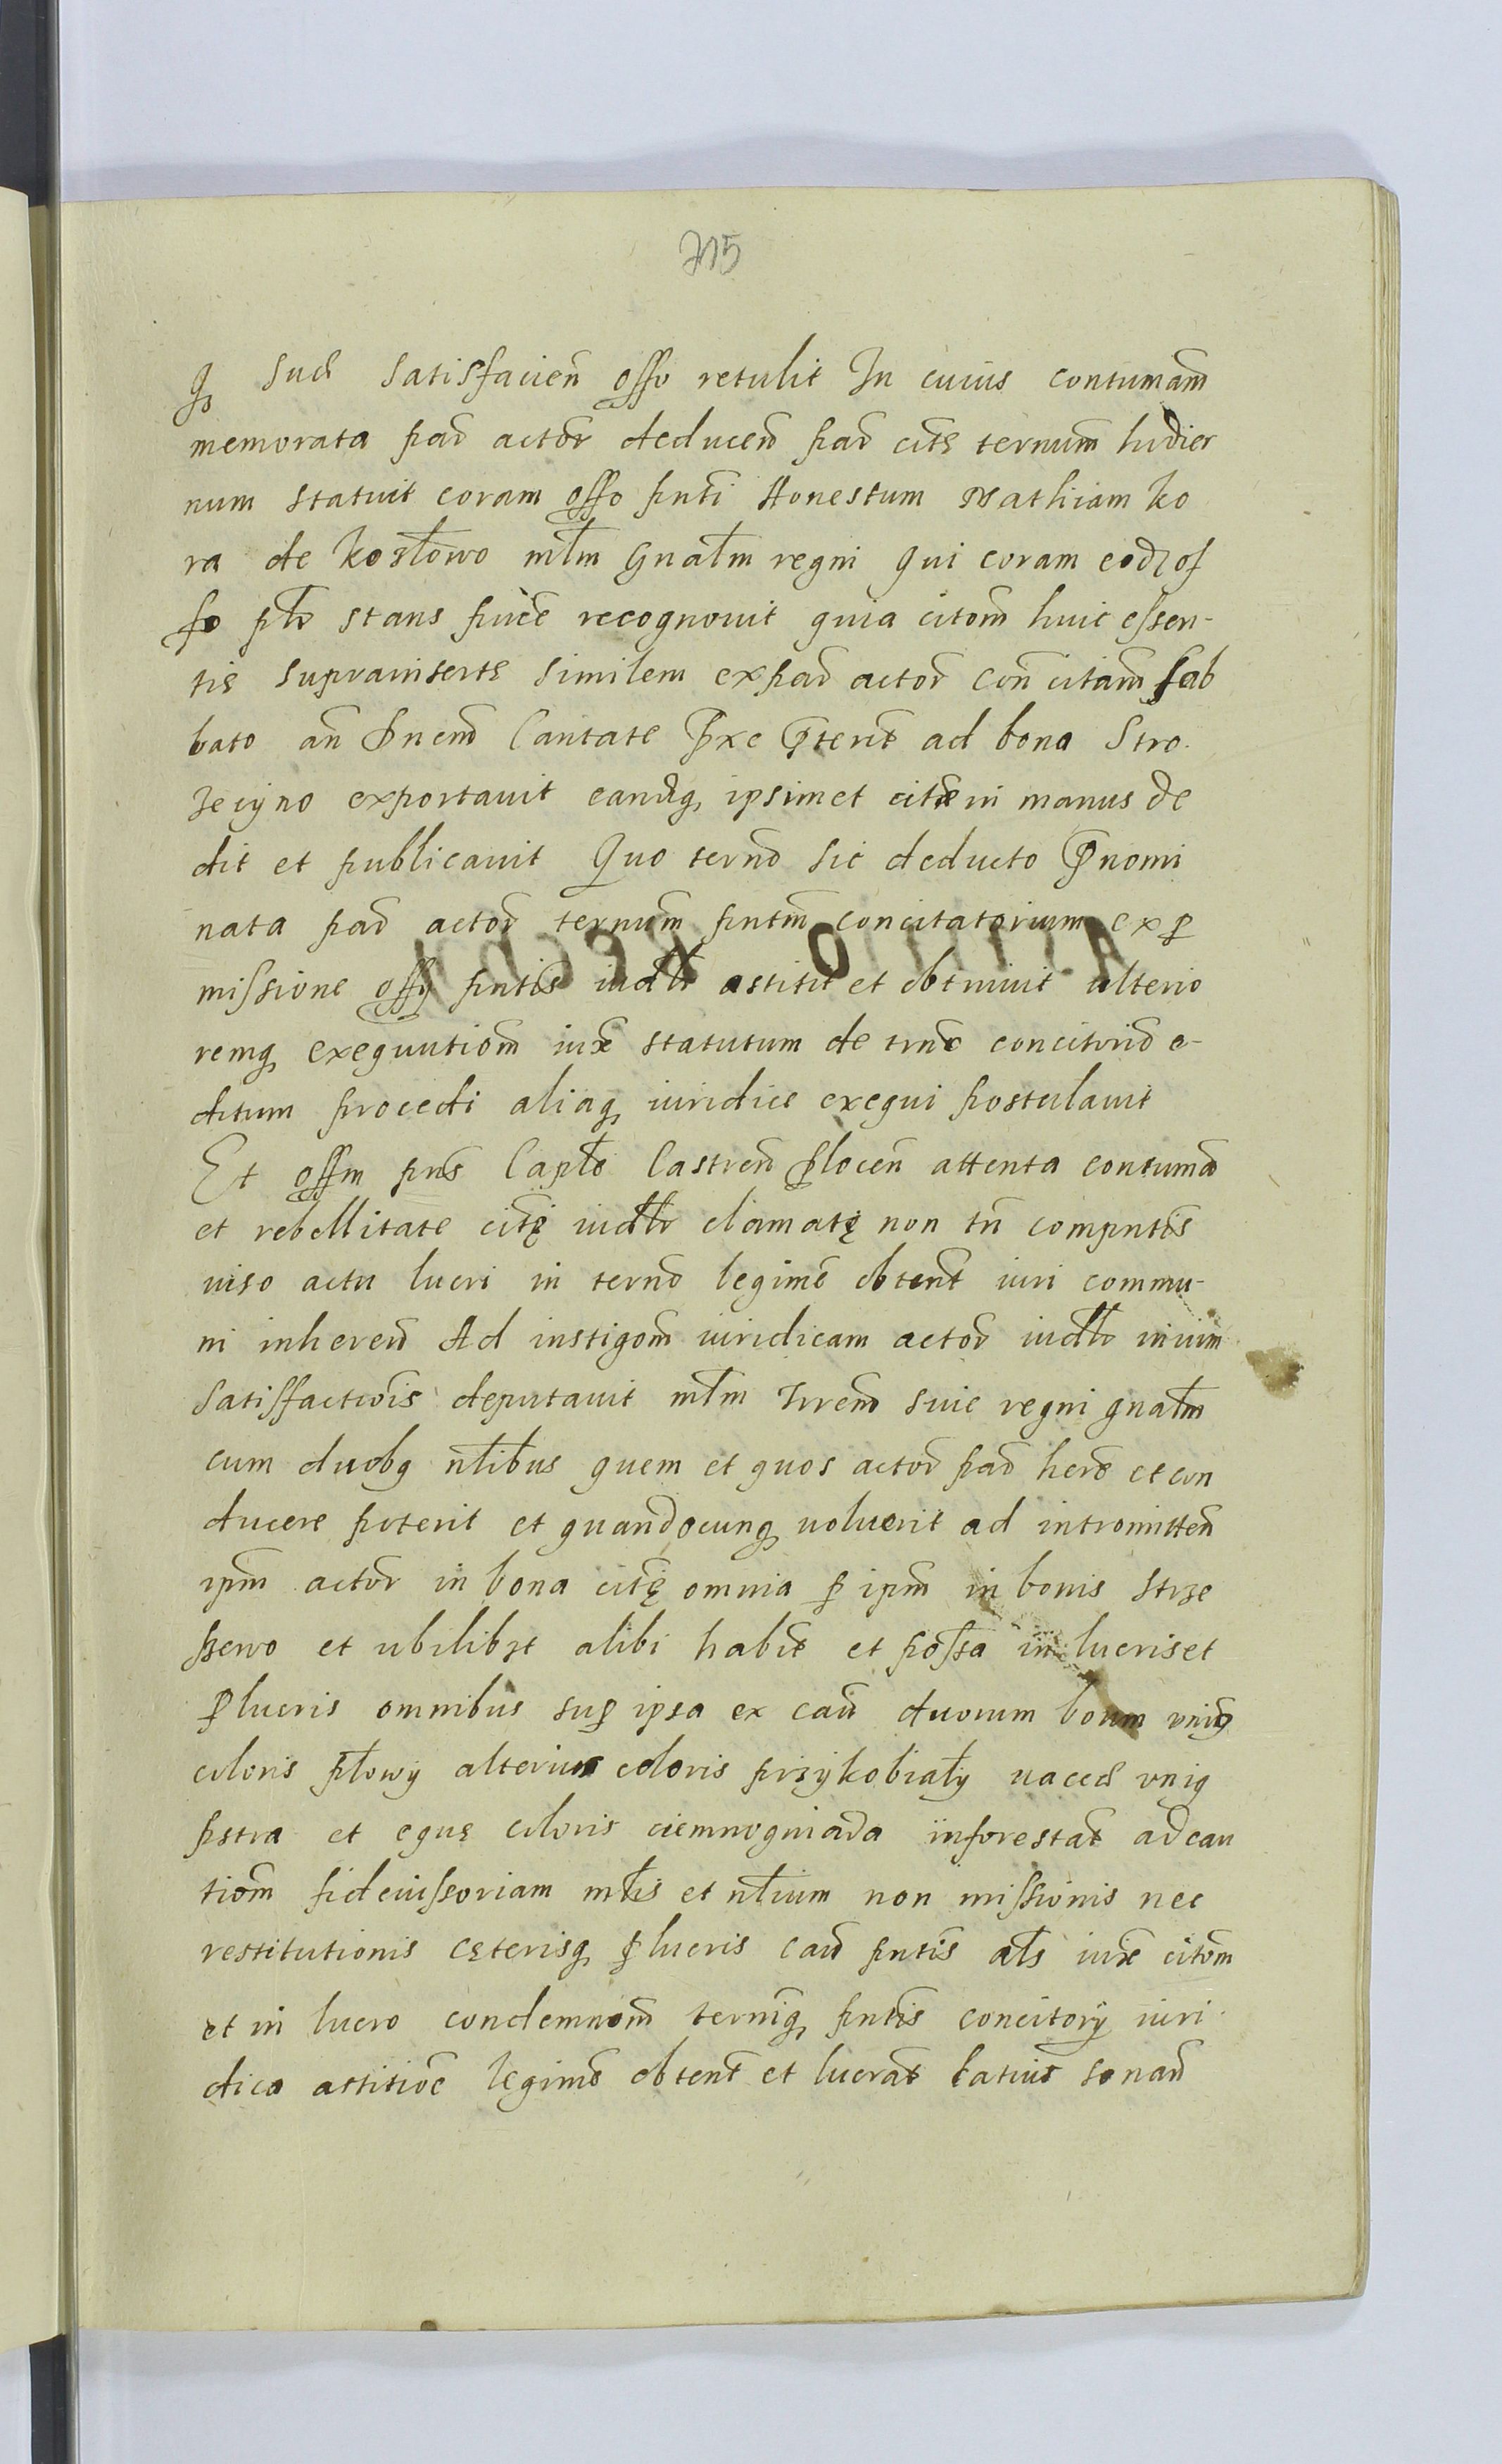 715
sua satisfacien offo retulit In cuius contumam
memorata par actor deducen par cite ternum hodier
num statuit coram offo pnti Honestum Mathiam ko
ra de Kozłowo mlm Gnalm regni qui coram eod of
fo plr stans pnice recognouit quia citom huic essen-
tie suprainserte similem ex par actor con citam sab
bato an Dnem Cantate pxe pterit ad bona Stro
zecyno exportauit eandq ipsimet cite in manus de
dit et publicauit Quo terno sic deducto pnomi
nata par actor ternum pntm concitatorium ex p
missione offy pntis iudlr astitit et obtinuit ulterio
remq exequutiom iure statutum de trno concitorio e-
ditum procedi aliaq iuridice exequi postulauit
Et offm pns Caple Castren Plocen attenta contuma
et rebellitate citę iudlr clamatę non tn compntis
uiso actu lucri in terno legime obtent iuri commu-
ni inheren Ad instigom iuridicam actor iudlr in uim
satisfactiois deputauit mlm trrem siue regni gnalm
cum duobq nlibus quem et quos actor par here et con
ducere poterit et quandocunq uoluerit ad intromitten
ipm actor in bona citę omnia p ipm in bonis strze
szewo et ubilibzt alibi habit et possa in lucris et
plucris omnibus sup ipsa ex cau duorum boum vniq
coloris płowy alterius coloris przykobiały uacca vniq
pstra et eque coloris ciemnogniada inforestat ad cau
tiom fideiussoriam mlis et nlium non missionis nec
restitutionis ceterisq plucris cau pntis als iure citom
et in lucro condemnom terniq pntis concitory iuri
dica astitioe legime obtent et lucrat latius sonan